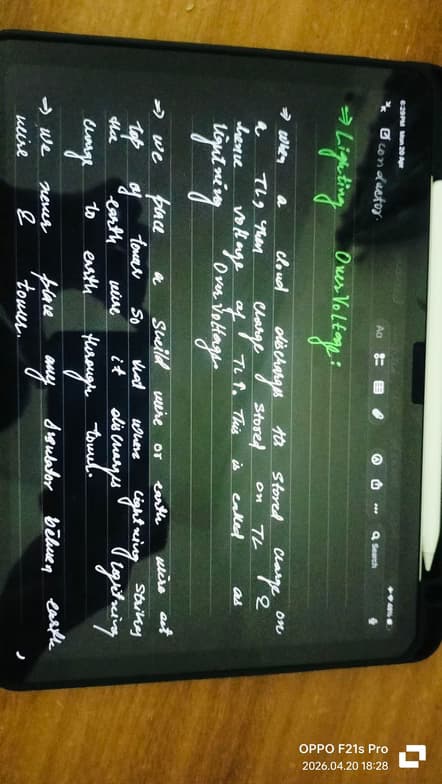 6:28 PM Mon 20 Apr
48%
conductor.
Aa
Search
⇒ Lighting Over Voltage:
⇒ When a cloud discharges its stored charge on
a TL, then charge stored on TL &
hence voltage of TL↑. This is called as
lightning Over Voltage
⇒ We place a Sheild wire or earth wire at
top of tower so that when lightning strikes
the earth wire it discharges lightning
charge to earth through tower.
⇒ We never place any Insulator between earth
wire & tower.
OPPO F21s Pro
2026.04.20 18:28